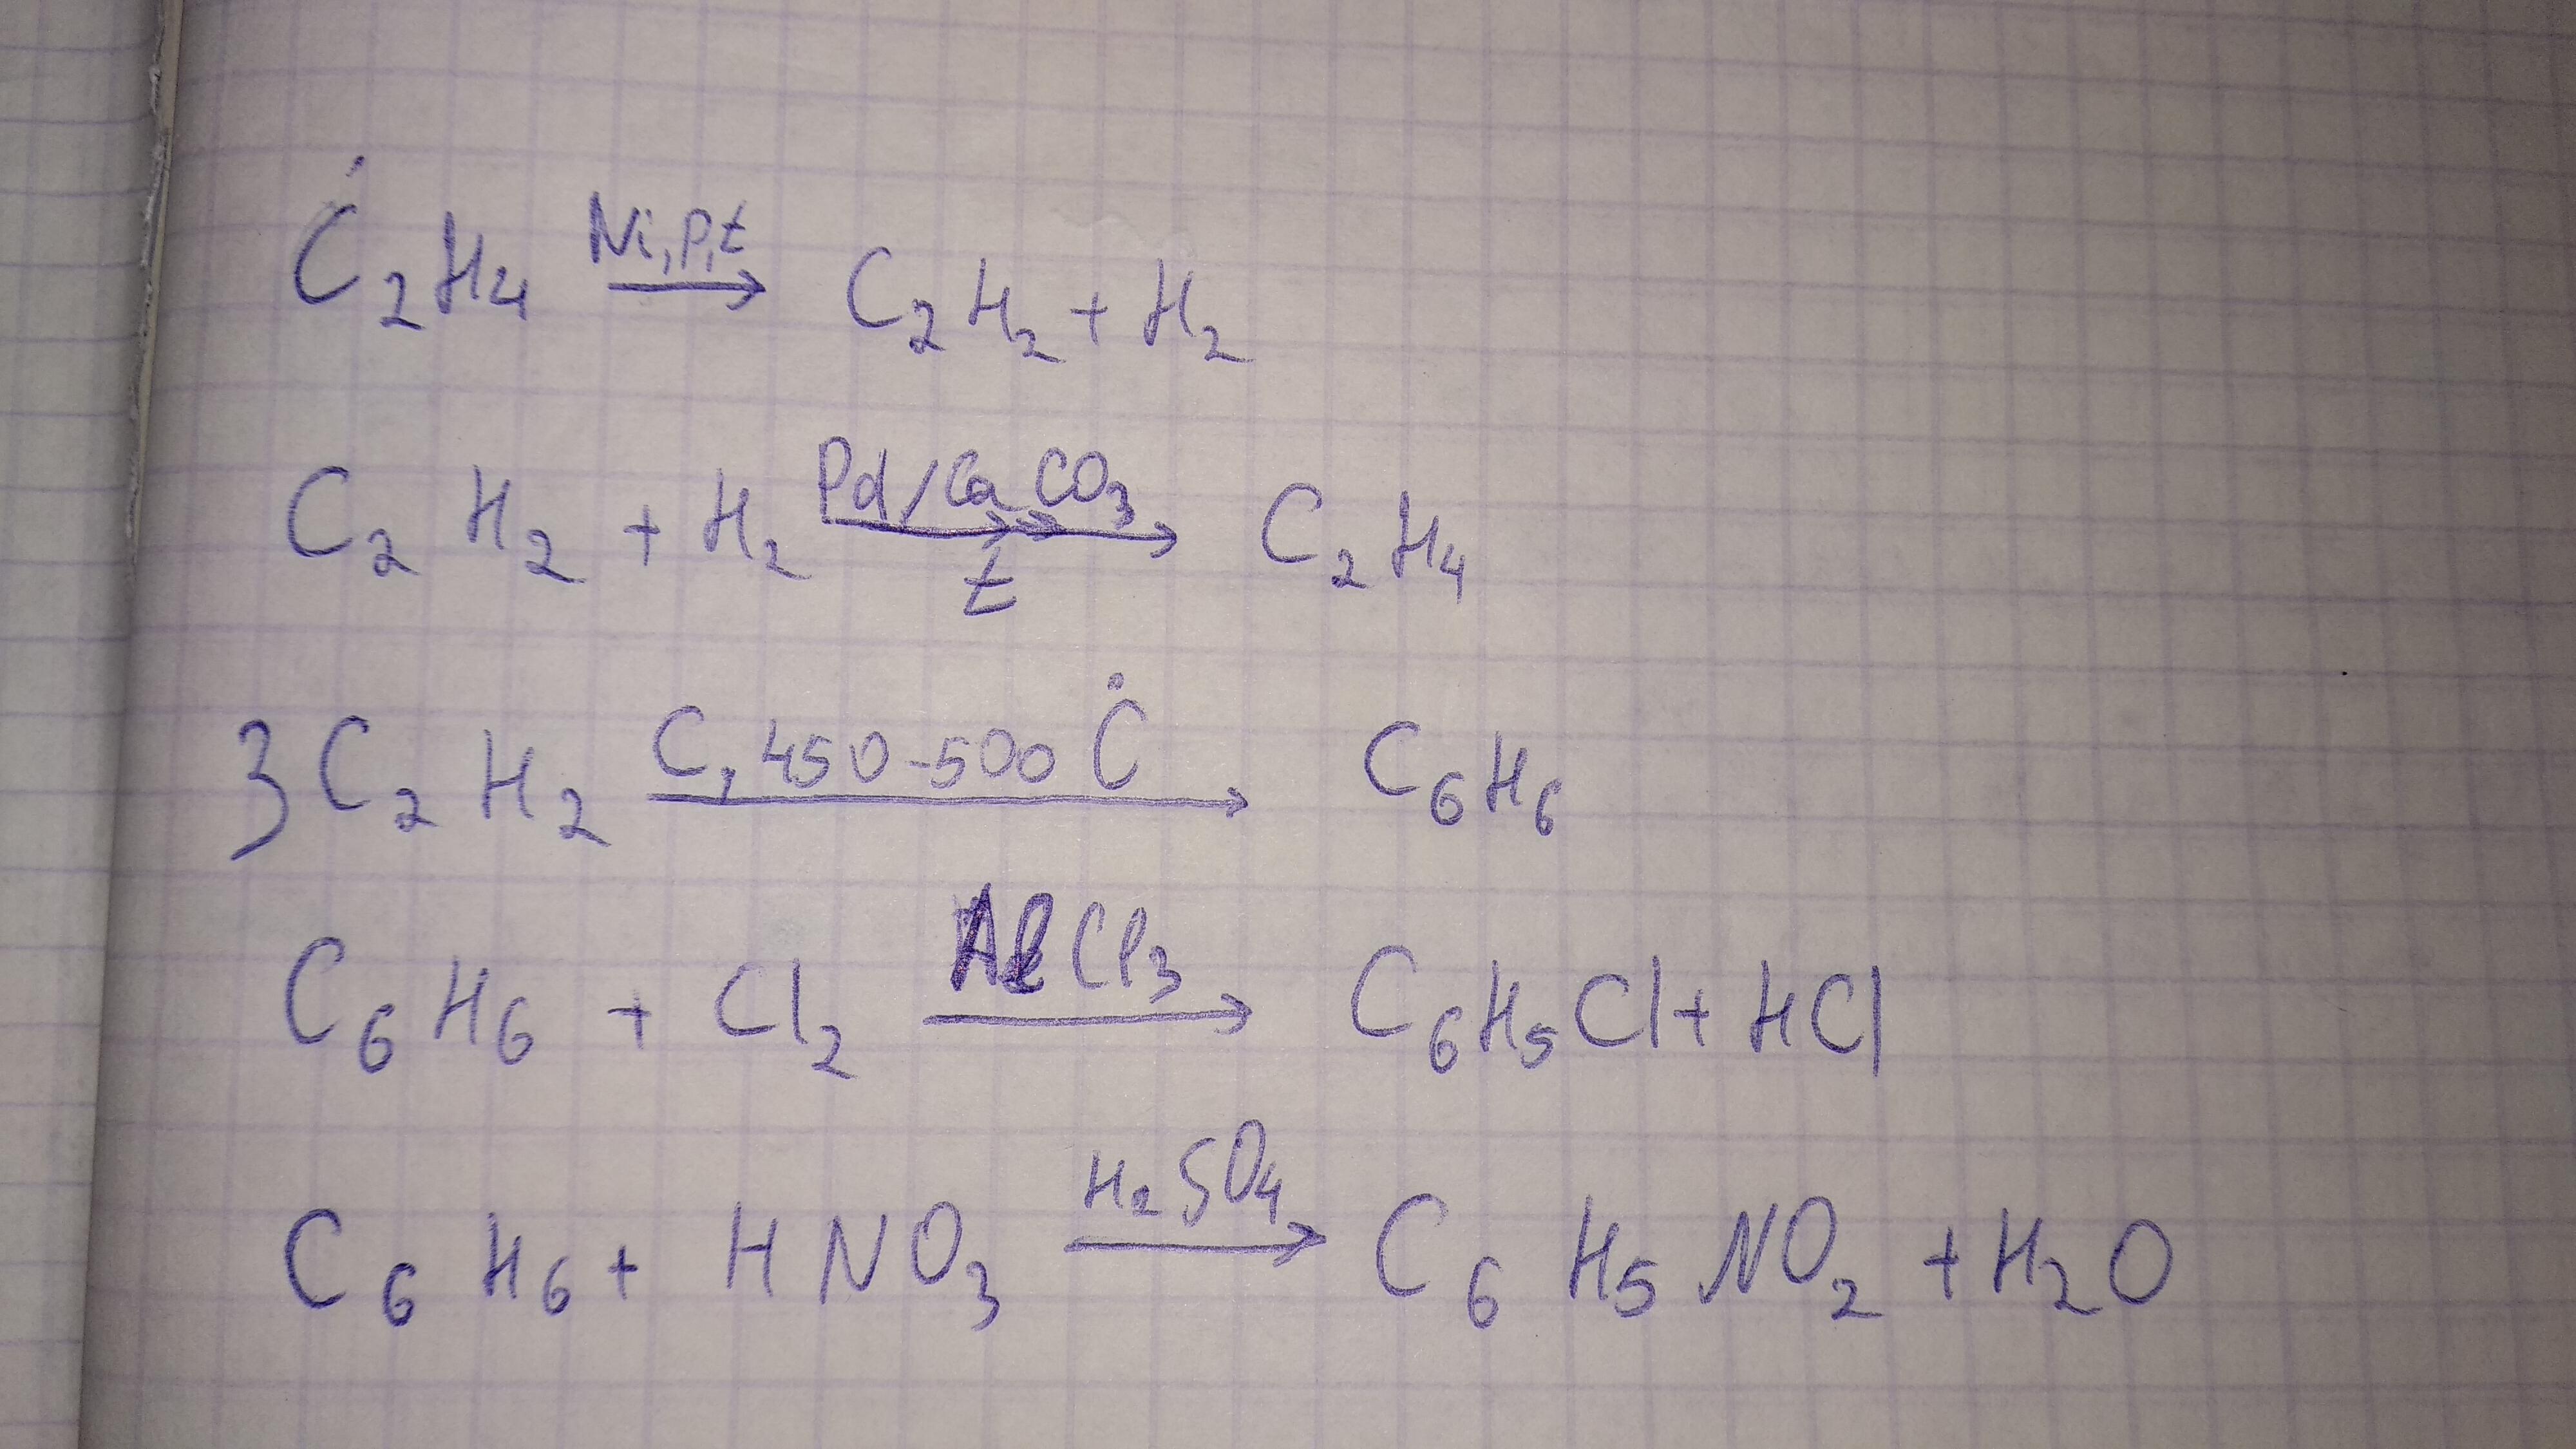 C₂H₄ —Ni, P, t→ C₂H₂ + H₂
C₂H₂ + H₂ —Pd/CaCO₃, t→ C₂H₄
3C₂H₂ —C, 450-500 °C→ C₆H₆
C₆H₆ + Cl₂ —AlCl₃→ C₆H₅Cl + HCl
C₆H₆ + HNO₃ —H₂SO₄→ C₆H₅NO₂ + H₂O